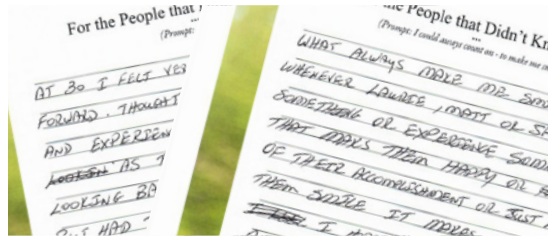 For the People that
(Prompt:
AT 30 I FELT VER
FORWARD. THOUGHT
AND EXPERIEN
AS
LOOKING BA
BUT HAD
the People that Didn't Kn
(Prompt: I could always count on - to make me
WHAT ALWAYS MAKE ME SMI
WHENEVER LAURIE, MATT OR
SOMETHING OR EXPERIENCE SOME
THAT MAKS THEM HAPPY OR
OF THEIR ACCOMPLISHMENT OR JUST
THEM SMILE IT MAKES
I